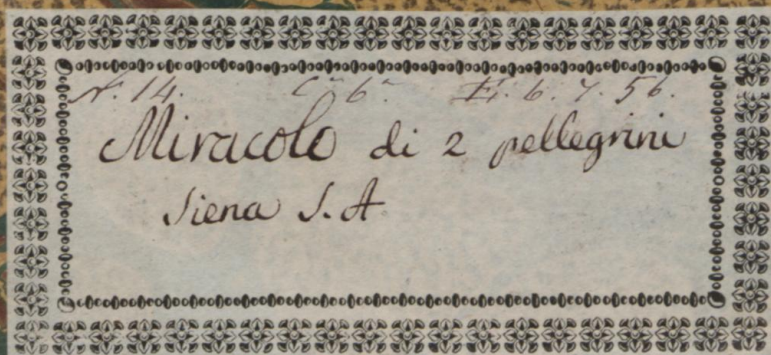 N. 14. C.ª 6.ª E. 6. 7. 56.
Miracolo di 2 pellegrini
Siena S. A